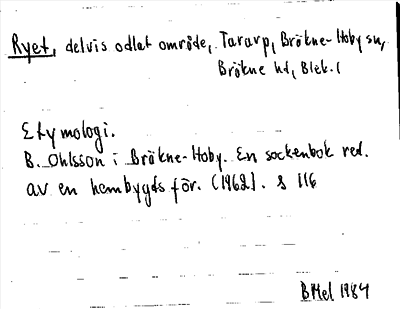 Ryet, delvis odlat område, Tararp, Bräkne-Hoby sn,
Bräkne hd, Blek. l
Etymologi.
B. Ohlsson i Bräkne-Hoby. En sockenbok red.
av en hembygdsför. (1962). s 116
BMel 1984